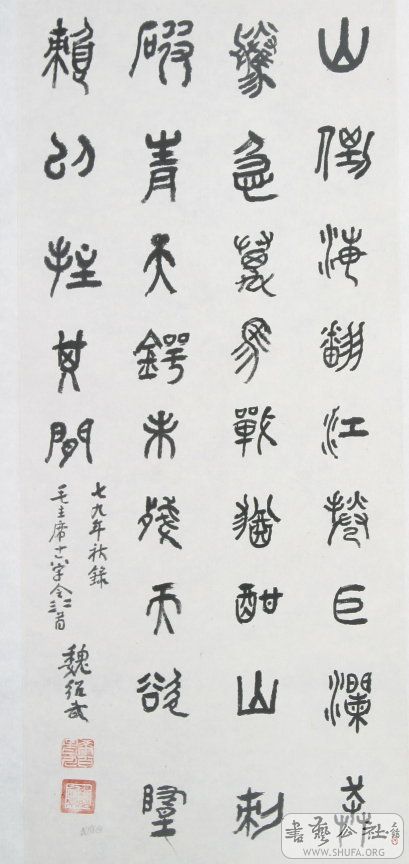 山倒海翻江捲巨瀾奔
騰急萬馬戰猶酣山刺
破青天鍔未殘天欲墮
賴以拄其間
七九年秋録
毛主席十六字令二首
魏紹武
書藝公社
WWW.SHUFA.ORG